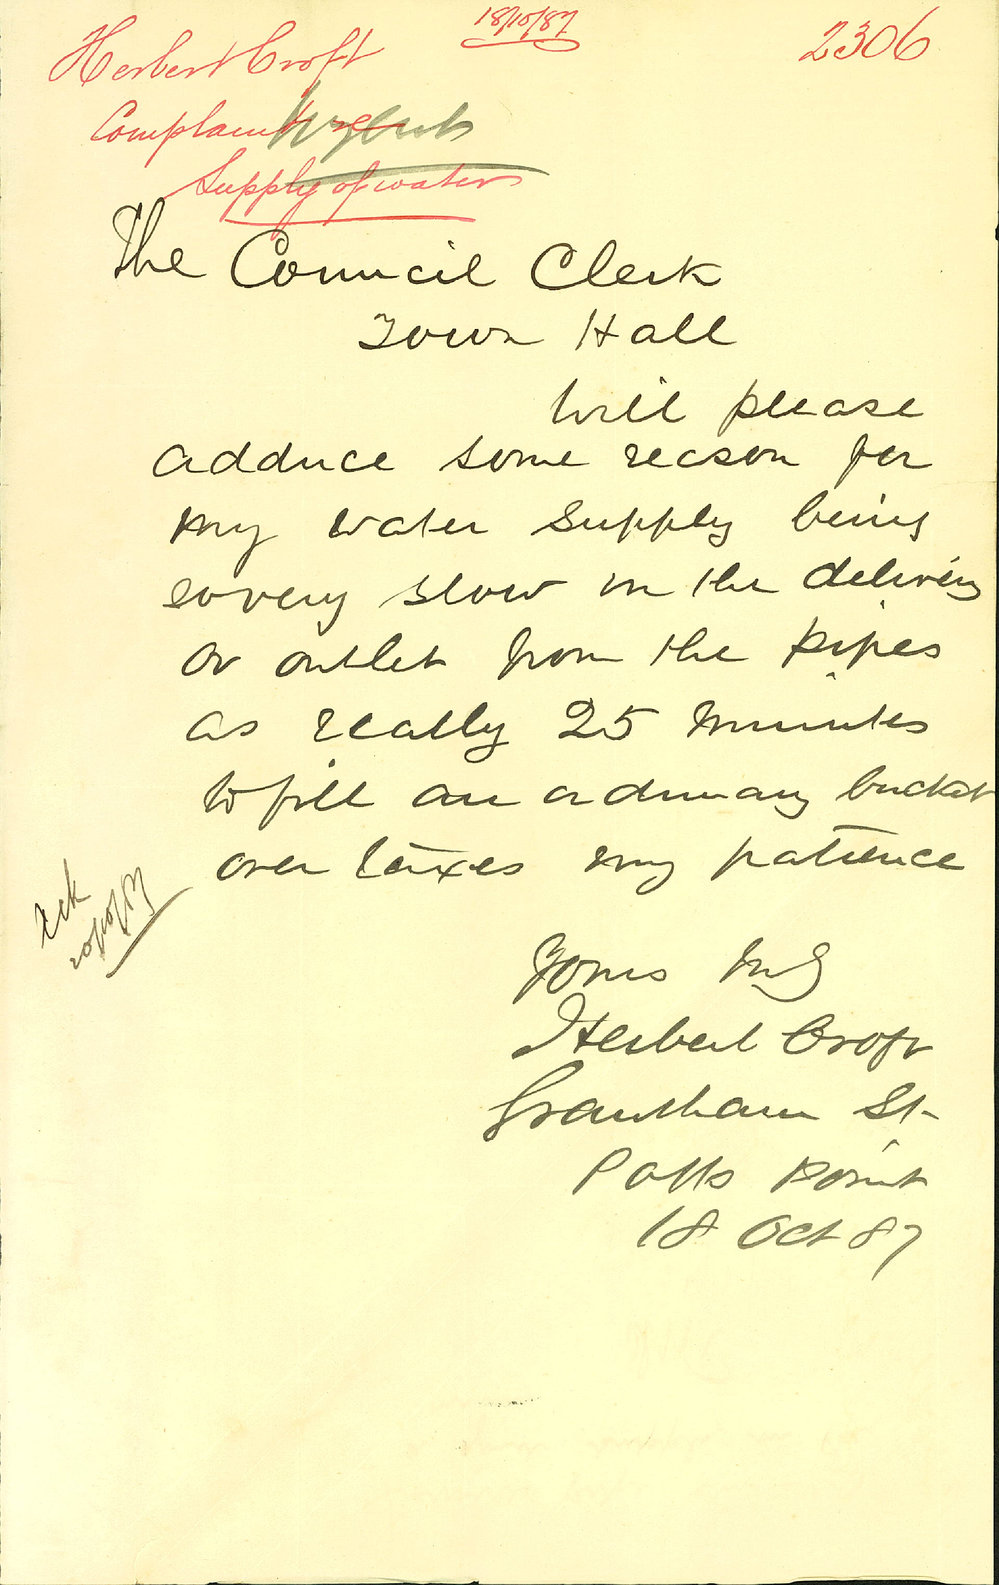 18/10/87
2306
Herbert Croft
Complaint re
Supply of water
The Council Clerk
Town Hall
Will please
adduce some reason for
my water supply being
so very slow in the delivery
or outlet from the pipes
as really 25 minutes
to fill an ordinary bucket
over taxes my patience
Ack
20/10/87
Yours
Herbert Croft
Grantham St
Potts Point
18 Oct 87